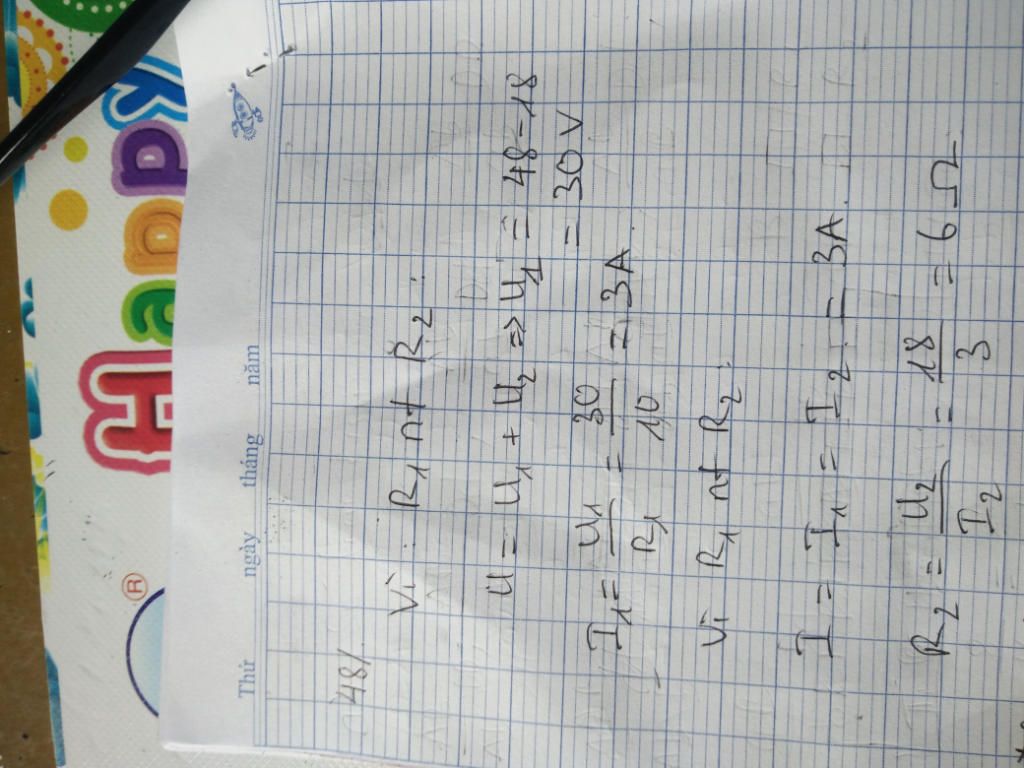 Happy
®
Thứ ngày tháng năm
48/
Vì R₁ nt R₂ :
U = U₁ + U₂ => U₁ = 48-18
= 30 V
I₁ = U₁/R₁ = 30/10 = 3A.
Vì R₁ nt R₂ :
I = I₁ = I₂ = 3A.
R₂ = U₂/I₂ = 18/3 = 6 Ω